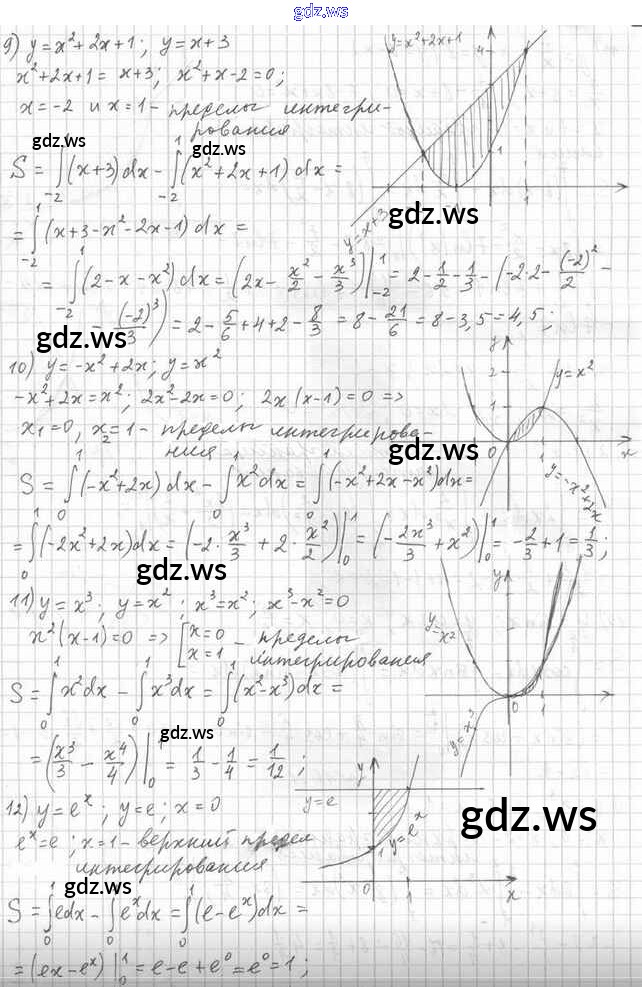 gdz.ws
9) y = x² + 2x + 1; y = x + 3
x² + 2x + 1 = x + 3; x² + x - 2 = 0;
x = -2 и x = 1 - пределы интегри-
рования
gdz.ws gdz.ws
S = ∫₋₂¹ (x + 3) dx - ∫₋₂¹ (x² + 2x + 1) dx =
= ∫₋₂¹ (x + 3 - x² - 2x - 1) dx =
= ∫₋₂¹ (2 - x - x²) dx = (2x - x²/2 - x³/3)|₋₂¹ = 2 - 1/2 - 1/3 - (-2·2 - (-2)²/2 -
- (-2)³/3) = 2 - 5/6 + 4 + 2 - 8/3 = 8 - 21/6 = 8 - 3,5 = 4,5;
y = x² + 2x + 1
4
1
-2 -1 1
y = x + 3
gdz.ws
gdz.ws
10) y = -x² + 2x; y = x²
-x² + 2x = x²; 2x² - 2x = 0; 2x (x - 1) = 0 =>
x₁ = 0, x₂ = 1 - пределы интегрирова-
ния
S = ∫₀¹ (-x² + 2x) dx - ∫₀¹ x² dx = ∫₀¹ (-x² + 2x - x²) dx =
= ∫₀¹ (-2x² + 2x) dx = (-2 · x³/3 + 2 · x²/2)|₀¹ = (-2x³/3 + x²)|₀¹ = -2/3 + 1 = 1/3;
y
2
1
y = x²
0 1 x
y = -x² + 2x
gdz.ws
gdz.ws
11) y = x³; y = x²; x³ = x²; x³ - x² = 0
x² (x - 1) = 0 => [x = 0 x = 1 - пределы
интегрирования
S = ∫₀¹ x² dx - ∫₀¹ x³ dx = ∫₀¹ (x² - x³) dx =
gdz.ws
= (x³/3 - x⁴/4)|₀¹ = 1/3 - 1/4 = 1/12;
y
y = x²
0 1
y = x³
12) y = eˣ; y = e; x = 0
eˣ = e; x = 1 - верхний предел
интегрирования
gdz.ws
S = ∫₀¹ e dx - ∫₀¹ eˣ dx = ∫₀¹ (e - eˣ) dx =
= (ex - eˣ)|₀¹ = e - e + e⁰ = e⁰ = 1;
y
y = e
y = eˣ
1
0 1 x
gdz.ws